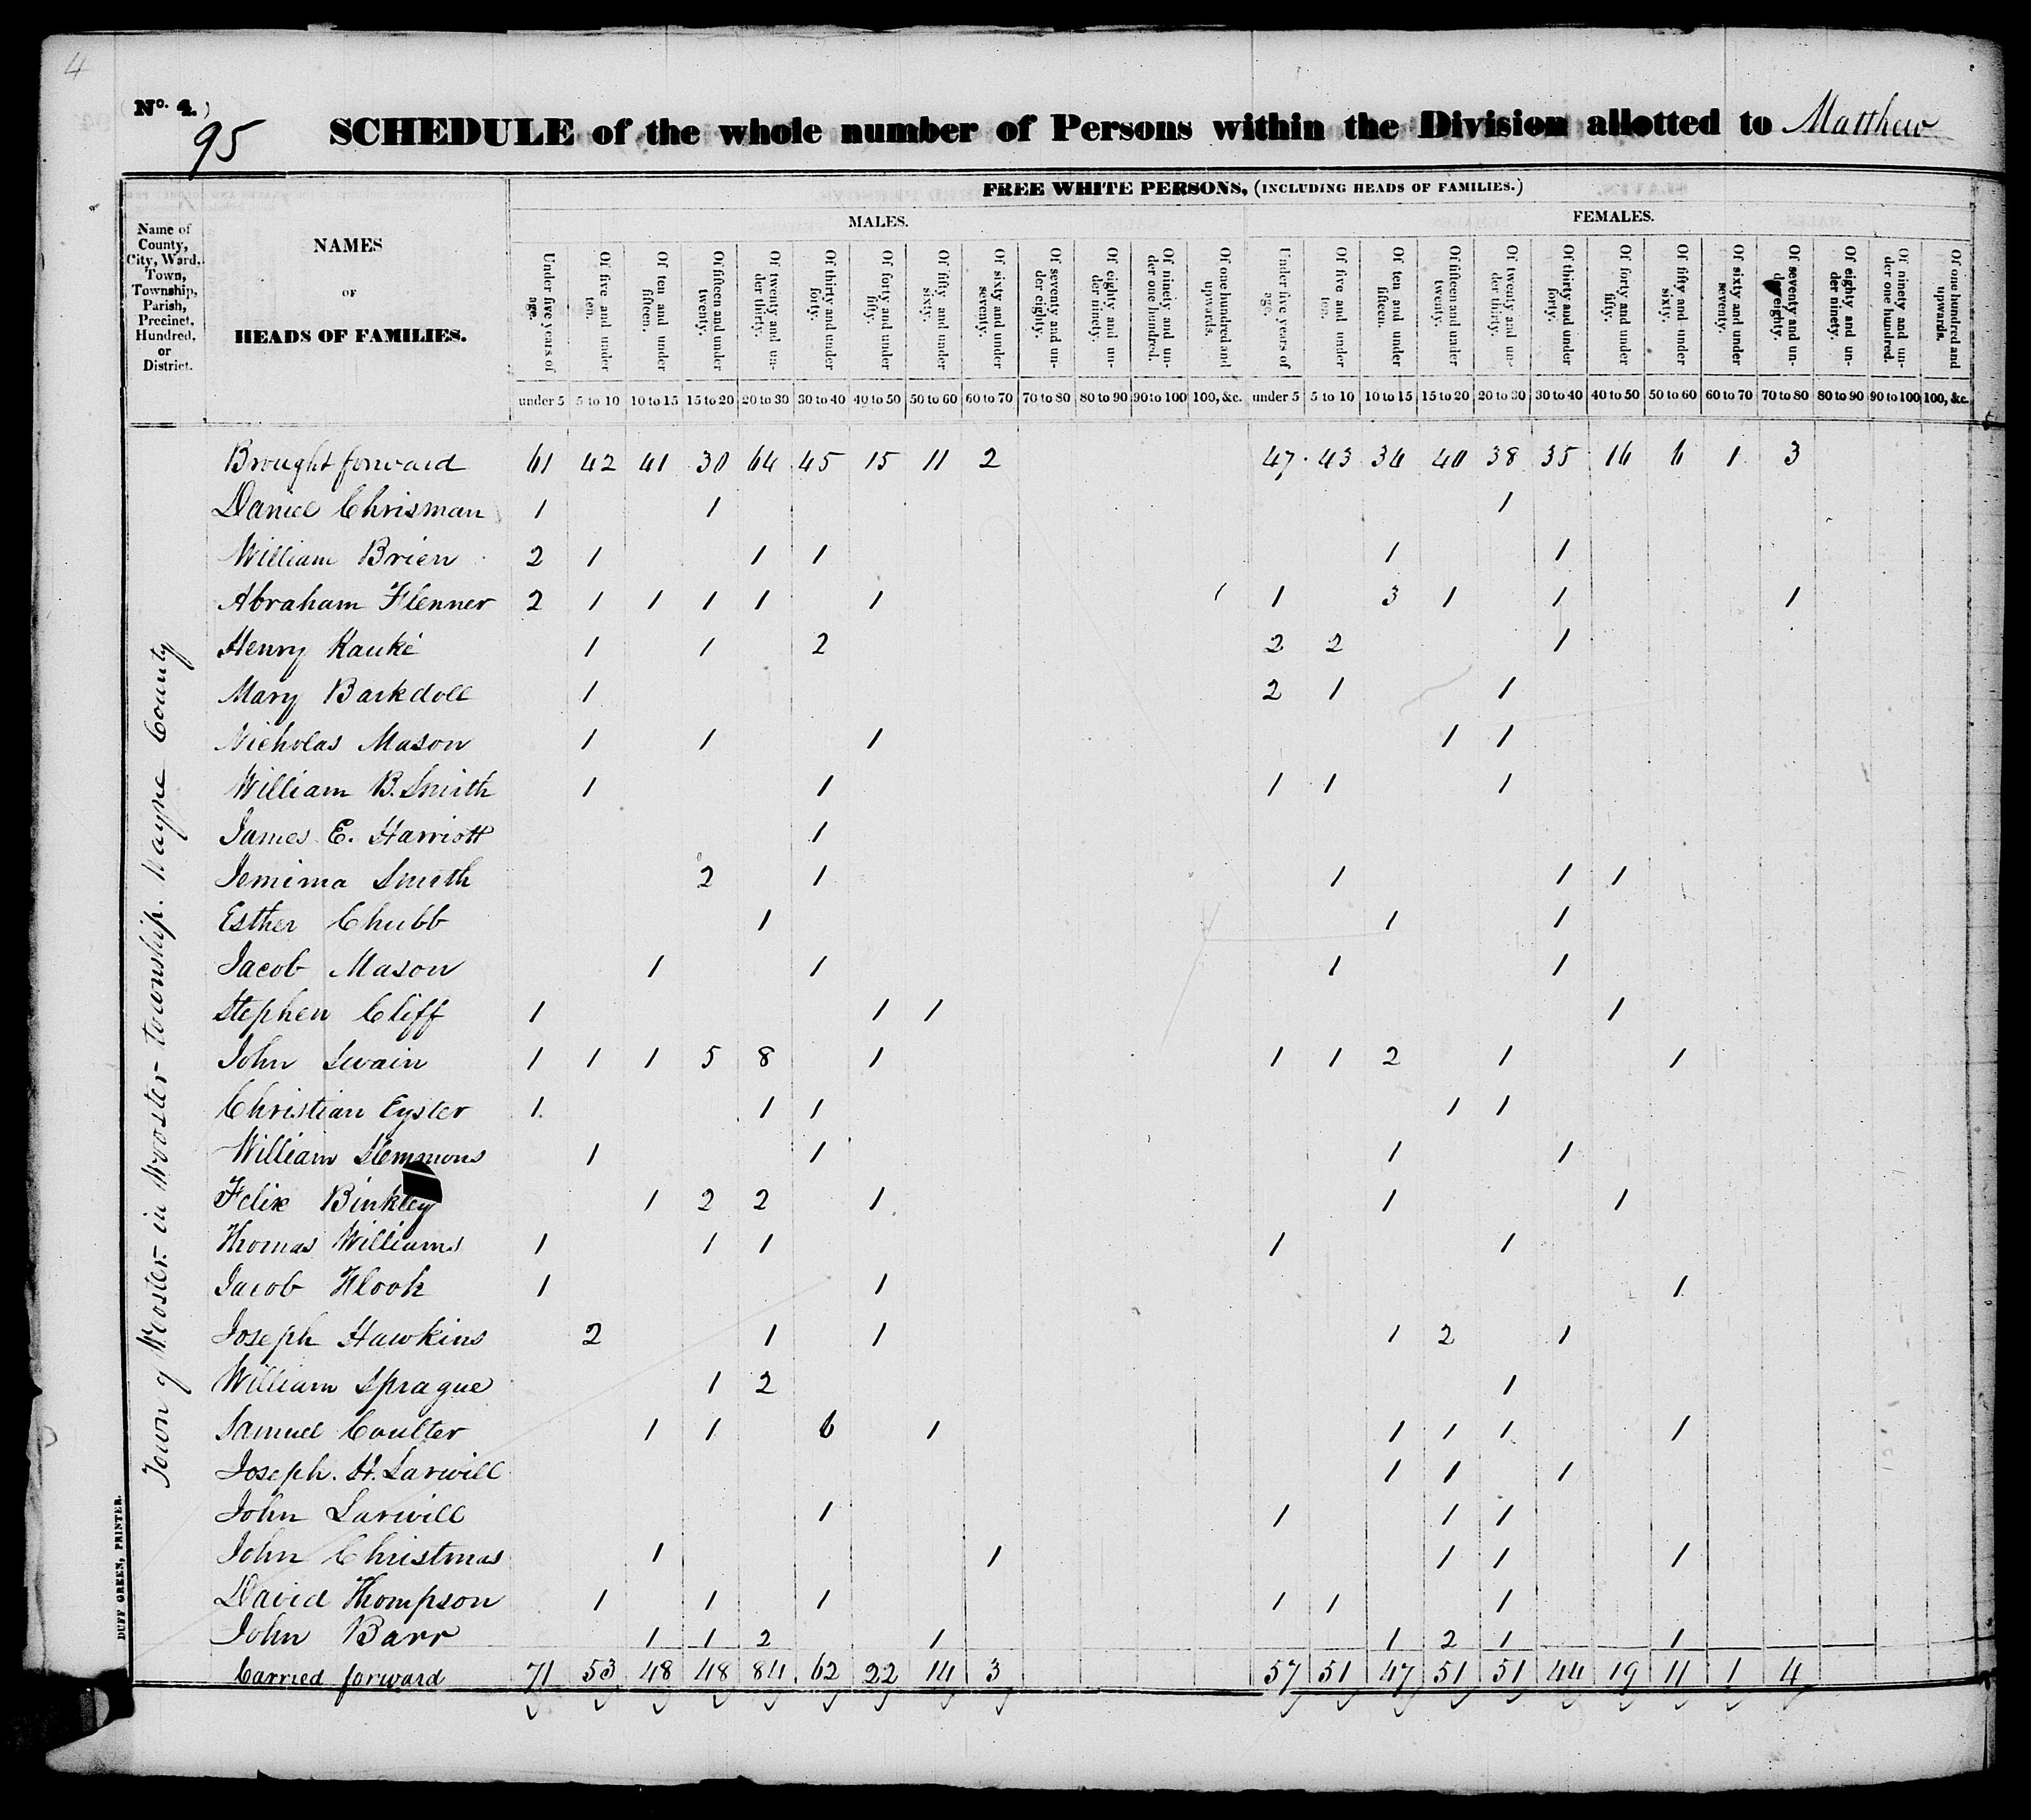 4
No. 4.)
95
SCHEDULE of the whole number of Persons within the Division allotted to Matthew
FREE WHITE PERSONS, (INCLUDING HEADS OF FAMILIES.)
MALES. FEMALES.
Name of County, City, Ward, Town, Township, Parish, Precinct, Hundred, or District.
NAMES
OF
HEADS OF FAMILIES.
Under five years of age.
Of five and under ten.
Of ten and under fifteen.
Of fifteen and under twenty.
Of twenty and under thirty.
Of thirty and under forty.
Of forty and under fifty.
Of fifty and under sixty.
Of sixty and under seventy.
Of seventy and under eighty.
Of eighty and under ninety.
Of ninety and under one hundred.
Of one hundred and upwards.
Under five years of age.
Of five and under ten.
Of ten and under fifteen.
Of fifteen and under twenty.
Of twenty and under thirty.
Of thirty and under forty.
Of forty and under fifty.
Of fifty and under sixty.
Of sixty and under seventy.
Of seventy and under eighty.
Of eighty and under ninety.
Of ninety and under one hundred.
Of one hundred and upwards.
under 5 5 to 10 10 to 15 15 to 20 20 to 30 30 to 40 40 to 50 50 to 60 60 to 70 70 to 80 80 to 90 90 to 100 100, &c. under 5 5 to 10 10 to 15 15 to 20 20 to 30 30 to 40 40 to 50 50 to 60 60 to 70 70 to 80 80 to 90 90 to 100 100, &c.
Town of Wooster in Wooster township. Wayne County
Brought forward 61 42 41 30 64 45 15 11 2 47 43 34 40 38 35 16 6 1 3
Daniel Chrisman 1 1 1
William Brien 2 1 1 1 1 1
Abraham Flenner 2 1 1 1 1 1 1 3 1 1 1
Henry Kauke 1 1 2 2 2 1
Mary Barkdoll 1 2 1 1
Nicholas Mason 1 1 1 1 1
William B. Smith 1 1 1 1 1
James E. Harriott 1
Jemima Smith 2 1 1 1 1
Esther Chubb 1 1 1
Jacob Mason 1 1 1 1
Stephen Cliff 1 1 1 1
John Swain 1 1 1 5 8 1 1 1 2 1 1
Christian Eyster 1 1 1 1 1
William Slemmons 1 1 1 1
Felix Binkley 1 2 2 1 1 1
Thomas Williams 1 1 1 1 1
Jacob Flook 1 1 1
Joseph Hawkins 2 1 1 1 2 1
William Sprague 1 2 1
Samuel Coulter 1 1 6 1 1 1 1 1
Joseph. H. Larwill 1 1 1
John Larwill 1 1 1 1
John Christmas 1 1 1 1 1
David Thompson 1 1 1 1 1 1
John Barr 1 1 2 1 1 2 1 1
Carried forward 71 53 48 48 84 62 22 14 3 57 51 47 51 51 44 19 11 1 4
DUFF GREEN, PRINTER.